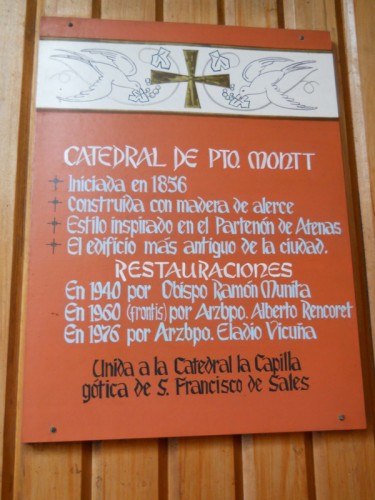 CATEDRAL DE PTO. MONTT
+ Iniciada en 1856
+ Construida con madera de alerce
+ Estilo inspirado en el Partenón de Atenas
+ El edificio más antiguo de la ciudad.
RESTAURACIONES
En 1940 por Obispo Ramón Munita
En 1960 (frontis) por Arzbpo. Alberto Rencoret
En 1976 por Arzbpo. Eladio Vicuña
Unida a la Catedral la Capilla
gótica de S. Francisco de Sales